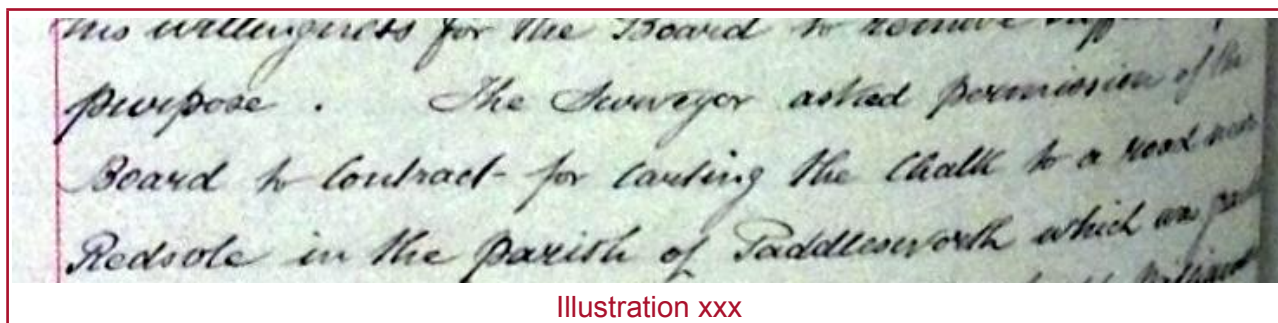 his willingness for the Board to remove
purpose. The Surveyor asked permission of the
Board to Contract for Carting the Chalk to a road near
Redsole in the parish of Paddlesworth which was
Illustration xxx